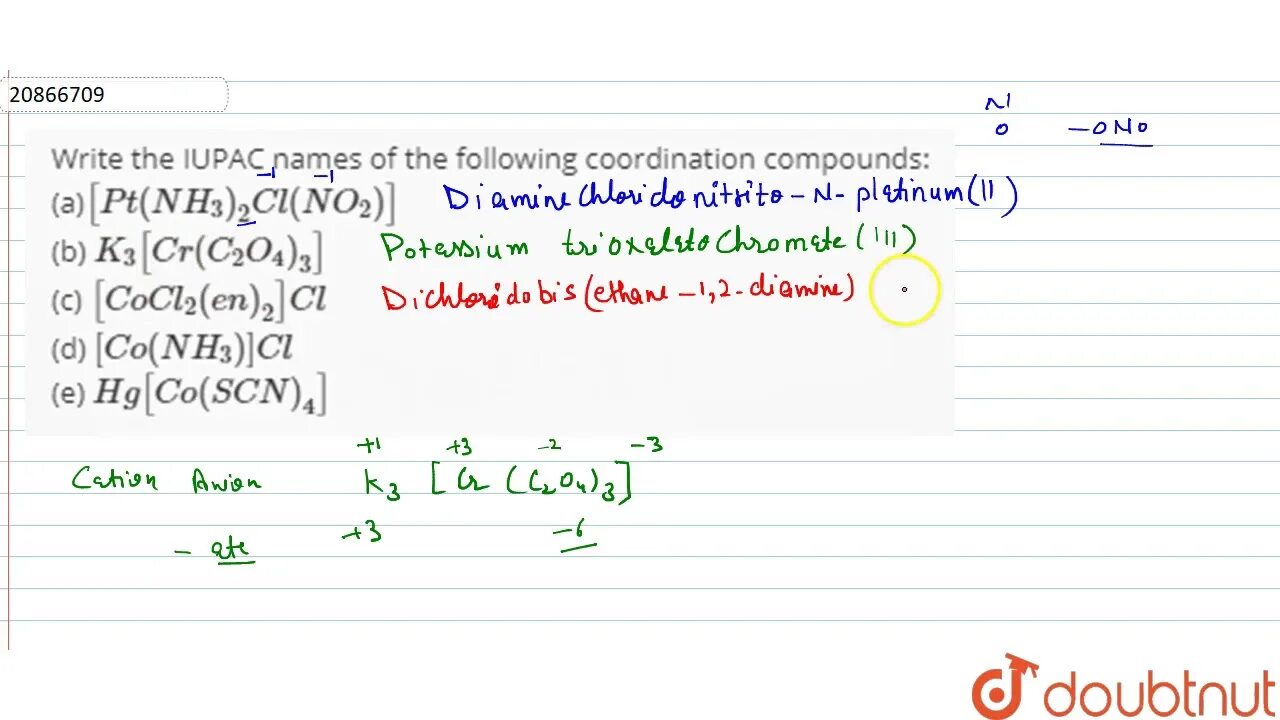 20866709
N1
O -ONO
Write the IUPAC names of the following coordination compounds:
-1 -1
(a) [Pt(NH₃)₂Cl(NO₂)] Diamine Chlorido nitrito-N-platinum(II)
(b) K₃[Cr(C₂O₄)₃] Potassium trioxalato Chromate (III)
(c) [CoCl₂(en)₂]Cl Dichlorido bis (ethane-1,2-diamine)
(d) [Co(NH₃)]Cl
(e) Hg[Co(SCN)₄]
+1 +3 -2 -3
Cation Anion K₃ [Cr (C₂O₄)₃]
+3 -6
- ate
doubtnut